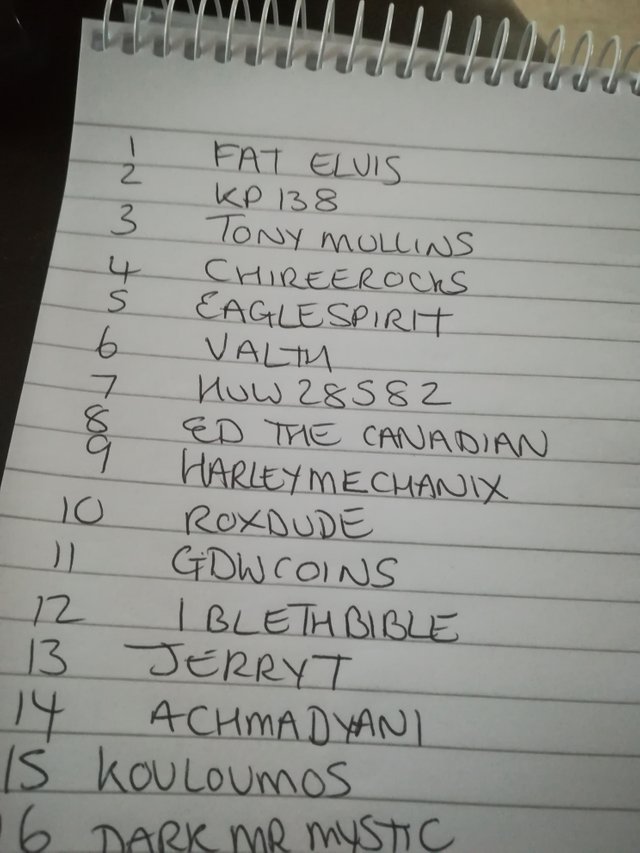 1 FAT ELVIS
2 KP138
3 TONY MULLINS
4 CHIREEROCKS
5 EAGLESPIRIT
6 VALTH
7 HUW28582
8 ED THE CANADIAN
9 HARLEYMECHANIX
10 ROXDUDE
11 GDWCOINS
12 1 BLETHBIBLE
13 JERRYT
14 ACHMADYANI
15 KOULOUMOS
16 DARK MR MYSTIC